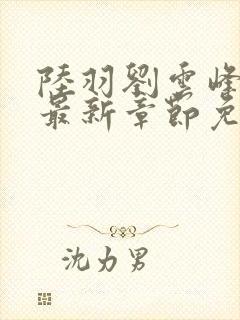 陸羽劉雲峰
最新章節免
沈力男